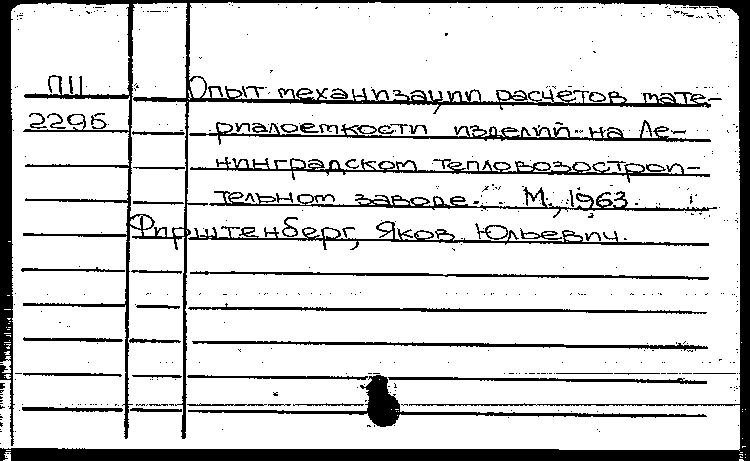 ПII
2296
Опыт механизации расчетов мате-
риалоемкости изделий на Ле-
нинградском тепловозострои-
тельном заводе. М., 1963.
Фирштенберг, Яков Юльевич.